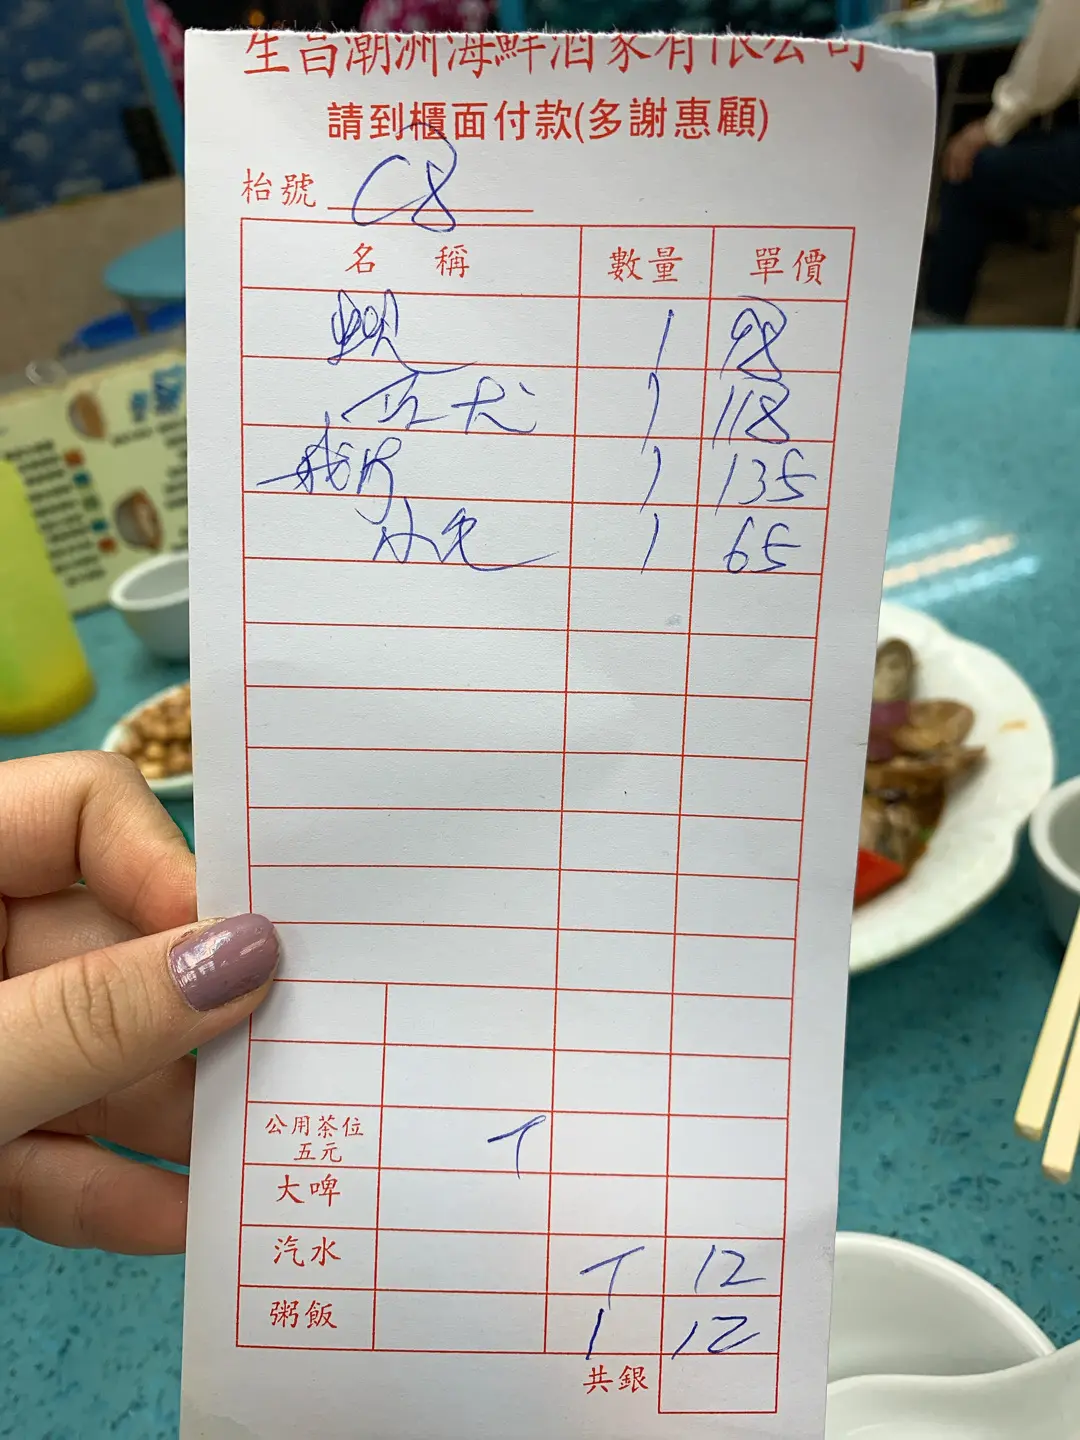 生昌潮洲海鮮酒家有限公司
請到櫃面付款(多謝惠顧)
枱號 C8
名 稱 數量 單價
1 98
1 118
1 135
1 65
公用茶位
五元
大啤
汽水 12
粥飯 1 12
共銀